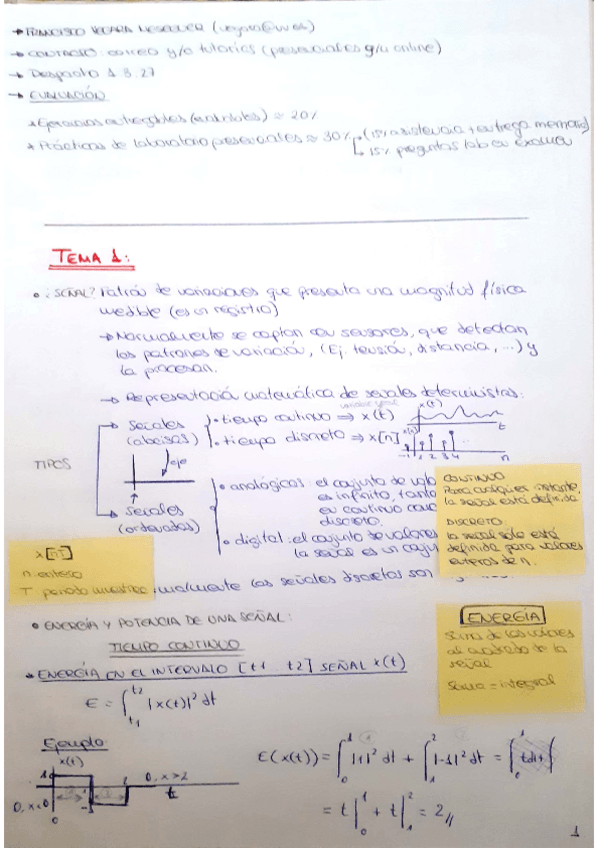 → FRANCISCO VEGARA MESEGUER
→ CONTACTO: correo y/o tutorías (presenciales y/u online)
→ Despacho 1.3.27
→ EVALUACIÓN
* Ejercicios entregables (eventuales) ≈ 20%
* Prácticas de laboratorio presenciales ≈ 30% (15% asistencia + entrega memoria)
15% preguntas lab en examen
TEMA 1:
• ¿SEÑAL? Patrón de variaciones que presenta una magnitud física
medible (es un registro)
→ Normalmente se captan con sensores, que detectan
los patrones de variación, (Ej. tensión, distancia, ...) y
la procesan.
→ Representación matemática de señales deterministas:
TIPOS
Señales (abcisas)
• tiempo continuo ⇒ x(t)
• tiempo discreto ⇒ x[n]
x(t)
t
x[n]
-1 1 2 3 4
n
eje
Señales (ordenadas)
• analógicos: el conjunto de valo
es infinito, tanto
en continuo como
discreto.
• digital: el conjunto de valores
la señal es un conju
CONTINUO
Para cualquier instante,
la señal está definida
DISCRETO
la señal solo está
definida para valores
enteros de n.
x[nT]
n entero
T periodo muestreo
malmente las señales discretas son
• ENERGÍA Y POTENCIA DE UNA SEÑAL:
TIEMPO CONTINUO
* ENERGÍA EN EL INTERVALO [t1 .. t2] SEÑAL x(t)
E = ∫_{t1}^{t2} |x(t)|² dt
ENERGÍA
Suma de los valores
al cuadrado de la
señal
Suma = integral
Ejemplo
x(t)
1
0, x>2
0, x<0
-1
0
t
E(x(t)) = ∫_0^1 |1|² dt + ∫_1^2 |-1|² dt =
= t|_0^1 + t|_1^2 = 2//
1